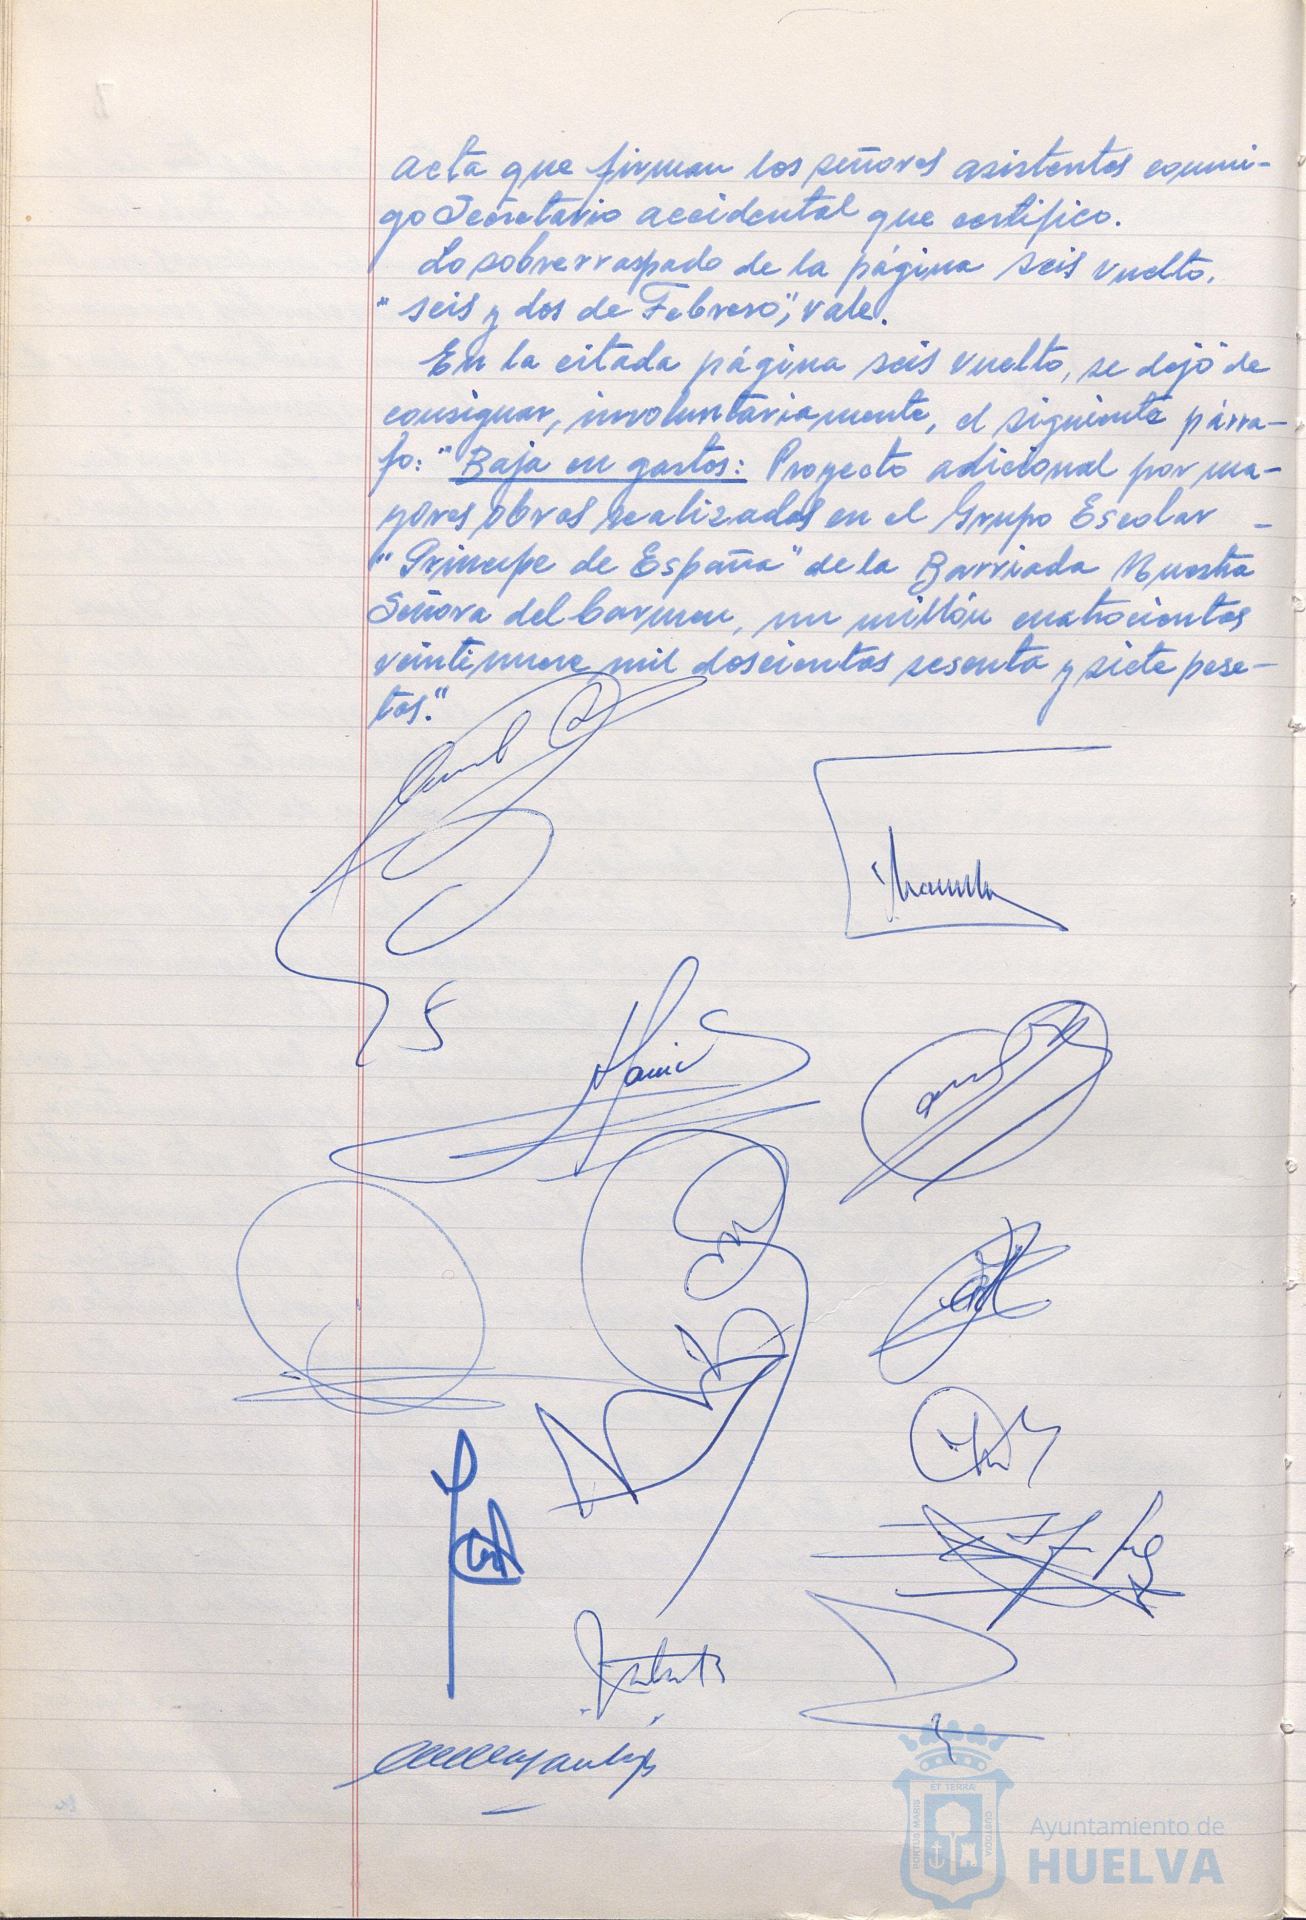 acta que firman los señores asistentes conmi-
go Secretario accidental que certifico.
Lo sobrerraspado de la página seis vuelto.
"seis y dos de Febrero", vale.
En la citada página seis vuelto, se dejó de
consignar, involuntariamente, el siguiente párra-
fo: "Baja en gastos: Proyecto adicional por ma-
yores obras realizadas en el Grupo Escolar -
"Principe de España" de la Barriada Nuestra
Señora del Carmen, un millón cuatrocientos
veintinueve mil doscientos sesenta y siete pese-
tas."
ET TERRAE
PORTUS MARIS
CUSTODIA
Ayuntamiento de
HUELVA